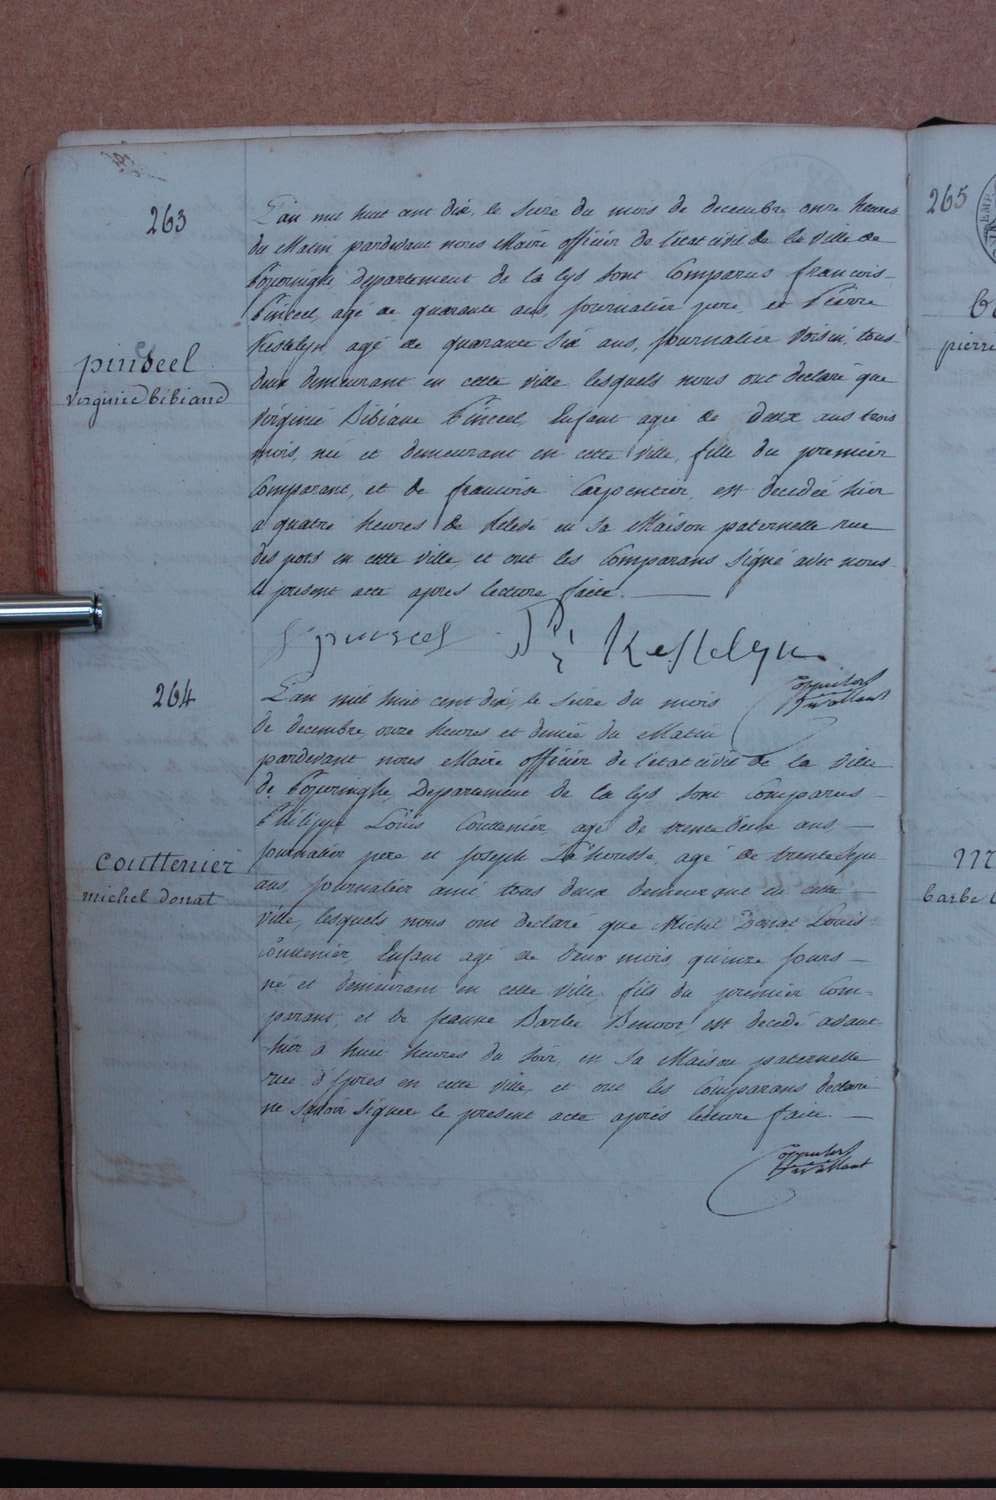 263
pinseel
virginie bibiane
L'an mil huit cent dix, le seize du mois de decembre onze heures
du Matin pardevant nous Maire officier de l'etat civil de la ville de
Poperinghe, departement de la Lys sont Comparus francois
Pinceel, agé de quarante ans, journalier pere, et Pierre
Kestelyn agé de quarante six ans, journalier voisin, tous
deux demeurant en cette ville lesquels nous ont declaré que
Virginie Bibiane Pinceel, Enfant agée de deux ans trois
mois, née et demeurant en cette ville, fille du premier
Comparant, et de francoise Carpentier, est decedée hier
a quatre heures de relevé en sa Maison paternelle rue
des pots en cette ville, et ont les Comparans signé avec nous
le present acte apres lecture faite.
f pinseel P: Kestelyn
264
couttenier
michel donat
L'an mil huit cent dix, le seize du mois
de decembre onze heures et demie du Matin
pardevant nous Maire officier de l'etat civil de la ville
de Poperinghe, Departement de la Lys sont Comparus
Philippe Louis Couttenier, agé de trente deux ans,
journalier pere et Joseph agé de trente sept
ans, journalier ami, tous deux demeurant en cette
ville, lesquels nous ont declaré que Michel Donat Louis
Couttenier, Enfant agé de deux mois quinze jours
né et demeurant en cette ville, fils du premier Com-
parant, et de Jeanne Barbe est decedé avant
hier à huit heures du soir, en sa Maison paternelle
rue d'Ypres en cette ville, et ont les Comparans declaré
ne savoir signer le present acte aprés lecture faite.
265
pierre
barbe